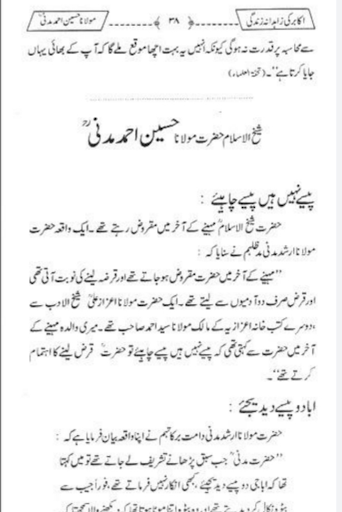 اکابر کی زاہدانہ زندگی ۳۸ مولانا حسین احمد مدنیؒ
سے محاسبہ پر قدرت نہ ہوگی کیونکہ انہیں یہ بہت اچھا موقع ملے گا کہ آپ کے بھائی یہاں
جایا کرتا ہے‘‘۔ (تحفۃ العلماء)
شیخ الاسلام حضرت مولانا حسین احمد مدنیؒ
پیسے نہیں ہیں پیسے چاہیئے :
حضرت شیخ الاسلامؒ مہینے کے آخر میں مقروض رہتے تھے۔ ایک واقعہ حضرت
مولانا ارشد مدنی مدظلہم نے سنایا کہ :
’’مہینے کے آخر میں حضرت مقروض ہوجاتے تھے اور قرضہ لینے کی نوبت آتی تھی
اور قرض صرف دو آدمیوں سے لیتے تھے۔ ایک حضرت مولانا اعزاز علیؒ شیخ الادب سے
،دوسرے کتب خانہ اعزازیہ کے مالک مولانا سید احمد صاحب تھے۔ میری والدہ مہینے کے
آخر میں حضرت سے کہتی تھی کہ پیسے نہیں ہیں پیسے چاہیئے تو حضرتؒ قرض لینے کا اہتمام
کرتے تھے‘‘۔
ابا دو پیسے دیدیجئے :
حضرت مولانا ارشد مدنی دامت برکاتہم نے اپنا واقعہ بیان فرمایا ہے کہ :
’’حضرت مدنیؒ جب سبق پڑھانے تشریف لے جاتے تھے تو میں کہتا
تھا کہ ابا جی دو پیسے دیدیجئے ، کبھی انکار نہیں فرماتے تھے، فوراً جیب سے